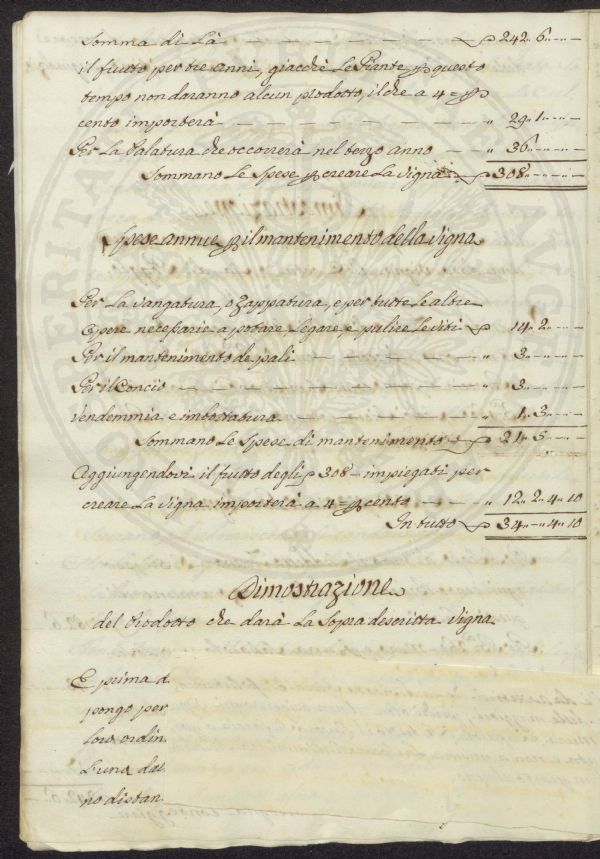 Somma di Là — — — — — — 242. 6. — —
il frutto per tre anni, giacchè Le Piante p questo
tempo non daranno alcun prodotto, il che a 4 = p
cento importerà — — — — — — " 29. 1. — —
Per La Palatura che occorrerà nel terzo anno — — " 36. — — —
Sommano Le Spese p creare La Vigna — 308. — — —
Spese annue p il mantenimento della Vigna
Per La Vangatura, o Zappatura, e per tutte Le altre
Opere necessarie a potare, Legare, e pulire Le Viti — 14. 2. — —
Per il mantenimento de pali — — — — " 3. — — —
Per il Concio — — — — — — " 3. — — —
Vendemmia e imbottatura — — — — " 1. 3. — —
Sommano Le Spese di mantenimento — 21. 5. — —
Aggiungendovi il frutto degli 308 — impiegati per
creare La Vigna importerà a 4 = p cento — — " 12. 2. 4. 10
In tutto — 34. — 4. 10
Dimostrazione
del Prodotto che darà La Sopra descritta Vigna
E prima d
pongo per
loro ordin
L'una dal
no distan